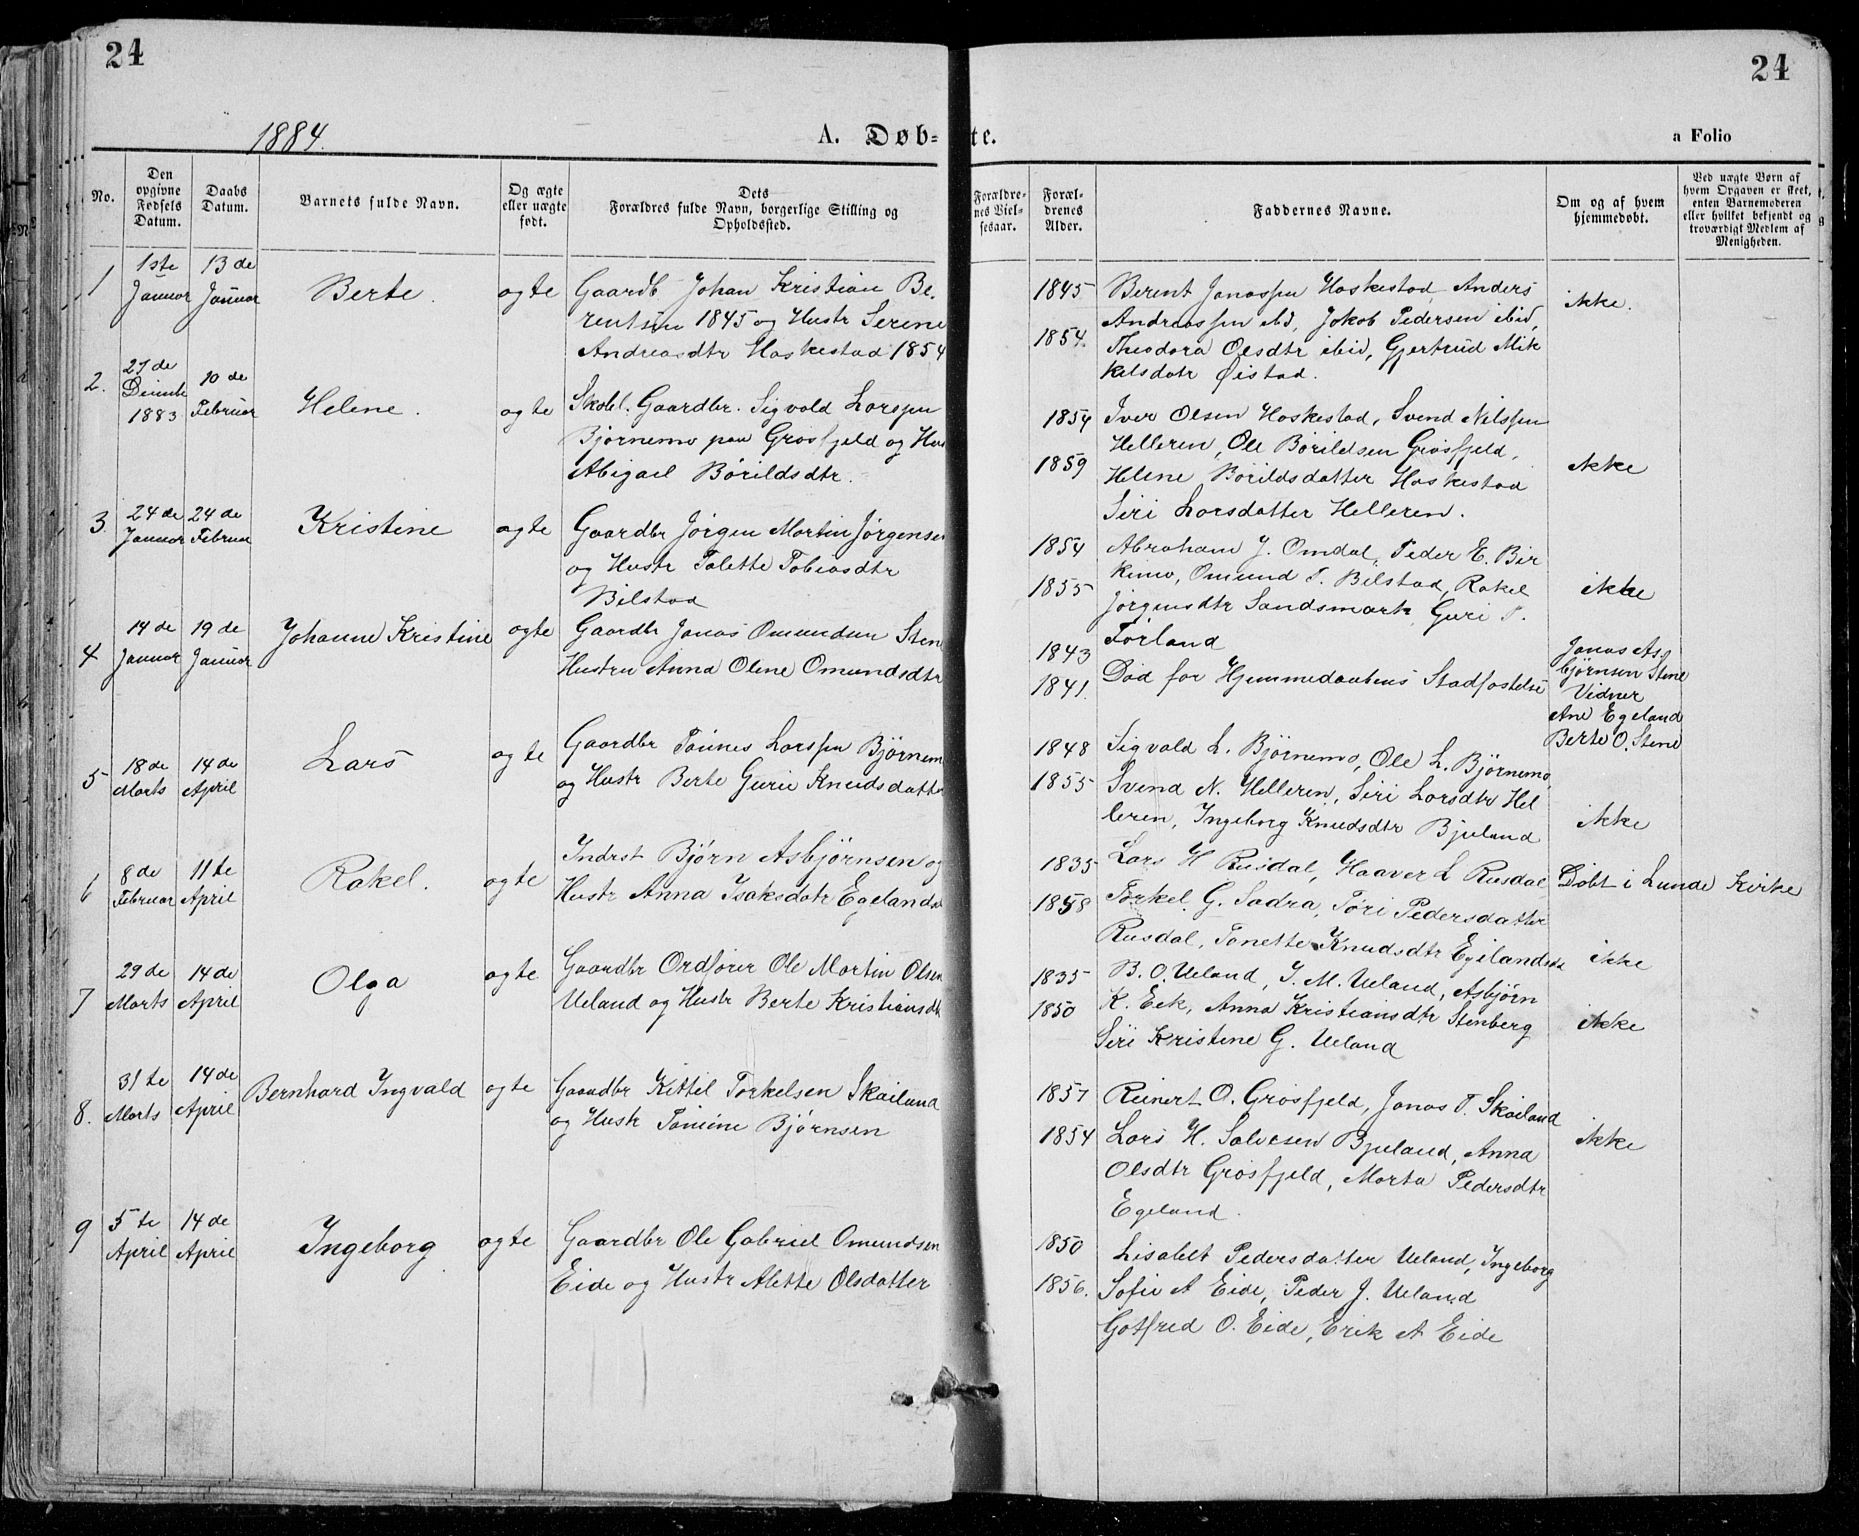 24
24
1884.
A. Døb-
te.
a Folio
No.
Den
opgivne
Fødsels
Datum.
Daabs
Datum.
Barnets fulde Navn.
Og ægte
eller uægte
født.
Dets
Forældres fulde Navn, borgerlige Stilling og
Opholdssted.
Forældre-
nes Viel-
sesaar.
Foræl-
drenes
Alder.
Faddernes Navne.
Om og af hvem
hjemmedøbt.
Ved uægte Børn af
hvem Opgaven er skeet,
enten Barnemoderen
eller hvilket bekjendt og
troværdigt Medlem af
Menigheden.
1
1ste
Januar
13de
Januar
Berte.
ægte
Gaardb Johan Kristian Be-
rentsen 1845 og Hustr Serene
Andreasdtr Haskestad 1854
1845
1854.
Berent Janassen Haskestad, Anders
Andreassen ibd, Jakob Pedersen ibid,
Theodora Olsdtr ibid, Gjertrud Mik
kelsdatr Øistad.
ikke.
2.
27de
Decembr
1883
10de
Februar
Helene.
ægte
Skobl. Gaardbr. Sigvald Larssen
Bjørnemo paa Grøsfjeld og Hus
Abigael Bórildsdtr.
1854
1859
Iver Olsen Haskestad, Svend Nilssen
Helleren, Ole Børildsen Grøsfjeld,
Helene Børildsdatter Haskestad
Siri Larsdatter Helleren.
ikke
3.
24de
Januar
24de
Februar
Kristine
ægte
Gaardbr Jørgen Martin Jørgensen
og Hustr Talette Tobiasdtr
Bilstad
1854
1855
Abraham J. Omdal, Peder E. Bir
kemo, Omund T. Bilstad, Rakel
Jørgensdtr Sandsmark, Guri T.
Førland
ikke
4
14de
Januar
19de
Januar
Johanne Kristine
ægte
Gaardbr Janas Omundsen Stene
Hustru Anna Olene Omundsdtr
1843
1841.
Død før Hjemmedaabens Stadfæstelse
Janas As-
bjørnsen Stene
Vidner
Ane Egeland
Berte O. Stene
5
18de
Marts
14de
April
Lars
ægte
Gaardbr Tønnes Larssen Bjørnem
og Hustr Berte Gurie Knudsdatte
1848
1855
Sigvald L. Bjørnemo, Ole L. Bjørnemo,
Svend N. Helleren, Siri Larsdtr Hel
leren, Ingeborg Knudsdtr Bjuland
ikke
6
8de
Februar
11te
April
Rakel.
ægte
Indrst Bjørn Asbjørnsen og
Hustr Anna Isaksdatr Egelands
1835
1858
Lars H Rusdal, Haaver L Rusdal,
Torkel G. Sadra, Tøri Pedersdatter
Rusdal, Tanette Knudsdtr Egelands
Døbt i Lunde Kirke
ikke
7
29de
Marts
14de
April
Olga
ægte
Gaardbr Ordfører Ole Martin Olsen
Ueland og Hustr Berte Kristiansdt
1835
1850
B. O. Ueland, T. M. Ueland, Asbjørn
K. Eek, Anna Kristiansdtr Stenberg
Siri Kristine G. Ueland
ikke
8.
31te
Marts
14de
April
Bernhard Ingvald
ægte
Gaardbr Kittil Torkelsen Skailand
og Hustr Tonine Bjørnsen
1857
1854
Reinert O. Grøsfjeld, Janas T. Skailand
Lars H. Salvesen Bjuland, Anna
Olsdtr Grøsfjeld, Marta Pedersdtr
Egeland.
ikke
9
5te
April
14de
April
Ingeborg
ægte
Gaardbr Ole Gabriel Omundsen
Eide og Hustr Alette Olsdatter
1850
1856.
Lisabet Pedersdatter Ueland, Ingeborg
Sofie A Eide, Peder J. Ueland
Gotfred O. Eide, Erik A Eide